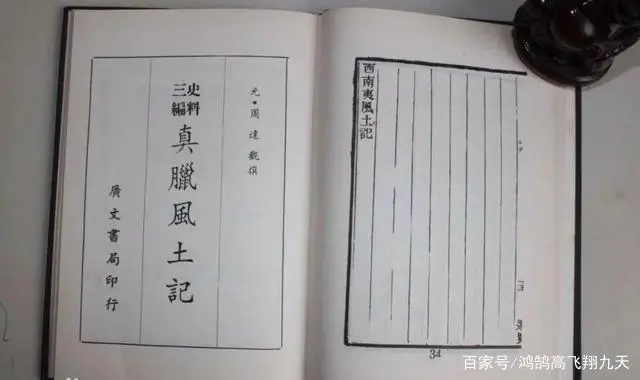 西南夷風土記
34
元•周達觀撰
史料
三編
真臘風土記
廣文書局印行
百家号/鸿鹄高飞翔九天